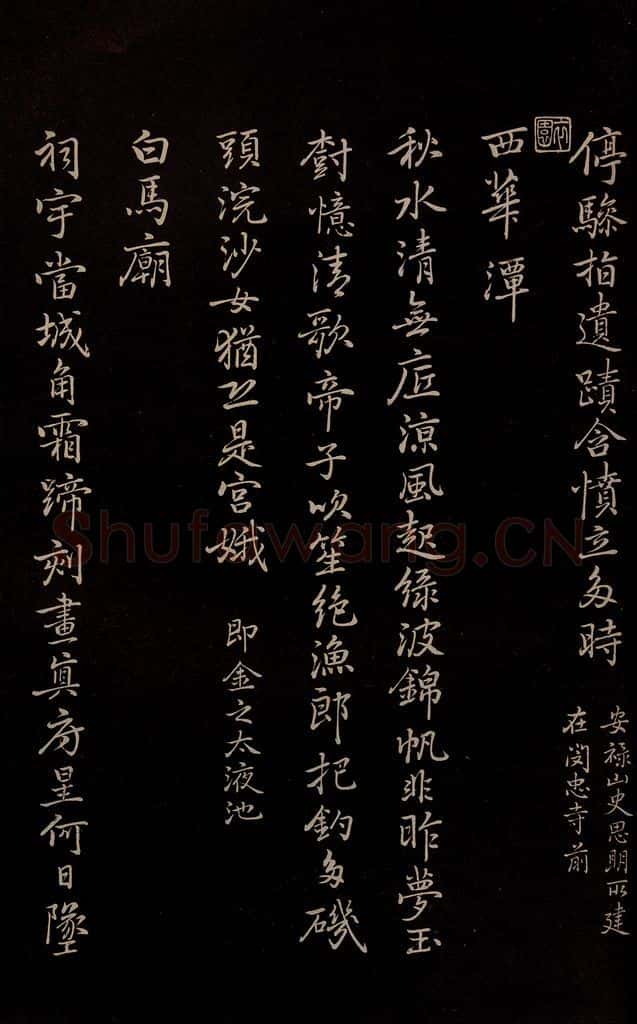 停驂指遺蹟含憤立多時
安祿山史思明所建
在閔忠寺前
西華潭
秋水清無底涼風起綠波錦帆非昨夢玉
樹憶清歌帝子吹笙絕漁郎把釣多磯
頭浣沙女猶恐是宮娥
即金之太液池
白馬廟
祠宇當城角霜蹄刻畫真房星何日墜
Shufawang.CN